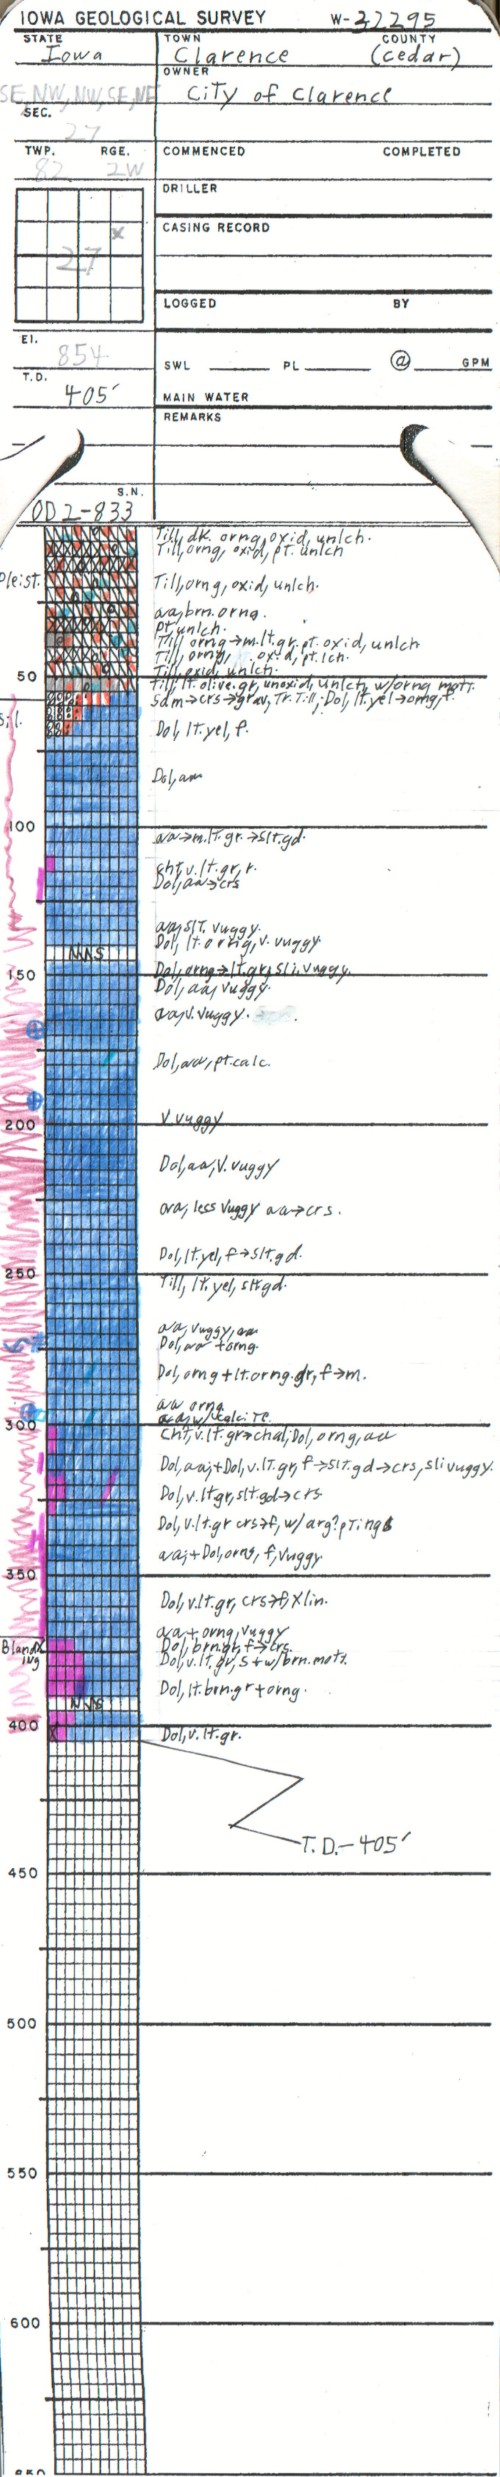 IOWA GEOLOGICAL SURVEY W-32295
STATE TOWN COUNTY
Iowa Clarence (Cedar)
OWNER
SE, NW, NW, SE, NE City of Clarence
SEC.
27
TWP. RGE. COMMENCED COMPLETED
82 2W
DRILLER
CASING RECORD
x
27
LOGGED BY
El.
854
SWL PL @ GPM
T.D.
405'
MAIN WATER
REMARKS
S.N.
OD 2-833
Till, dk orng, oxid, unlch.
Till, orng, oxid, pt. unlch
Pleist.
Till, orng, oxid, unlch.
aa, brn. orng.
pt. unlch.
Till, orng→m.lt.gr. pt. oxid, unlch
Till, orng, oxid, pt. lch.
Till, oxid, unlch.
50
Till, lt. olive.gr, unoxid, unlch w/orng mott.
sdm→crs→grav, Tr. Till; Dol, lt. yel→orng, f.
Sil.
Dol, lt. yel, f.
Dol, aa
100
aa→m.lt.gr.→slt.gd.
cht, v. lt. gr, r.
Dol, aa→crs
aa, slt. vuggy.
Dol, lt. orng, v. vuggy.
NNS
150
Dol, orng→lt. gr, sli. vuggy.
Dol, aa, vuggy.
aa, v. vuggy.
Dol, aa, pt. calc.
200
V vuggy
Dol, aa, V. vuggy
aa, less vuggy aa→crs.
Dol, lt. yel, f→slt.gd.
250
Till, lt. yel, slt gd.
aa, vuggy, aa
Dol, aa + orng.
Dol, orng + lt. orng. gr, f→m.
aa orng
aa, w/calcite.
300
Cht, v. lt. gr→chal; Dol, orng, aa
Dol, aa; + Dol, v. lt. gr, f→slt. gd→crs, sli vuggy.
Dol, v. lt. gr, slt. gd→crs
Dol, v. lt. gr crs→f, w/ arg? pTings
aa; + Dol, orng, f, vuggy
350
Dol, v. lt. gr, crs→f, Xlin.
aa + orng, vuggy
Dol, brn. gr, f→crs.
Blanding
Dol, v. lt. gr, s + w/brn. mott.
Dol, lt. brn. gr + orng.
NNS
400
Dol, v. lt. gr.
T.D.-405'
450
500
550
600
650